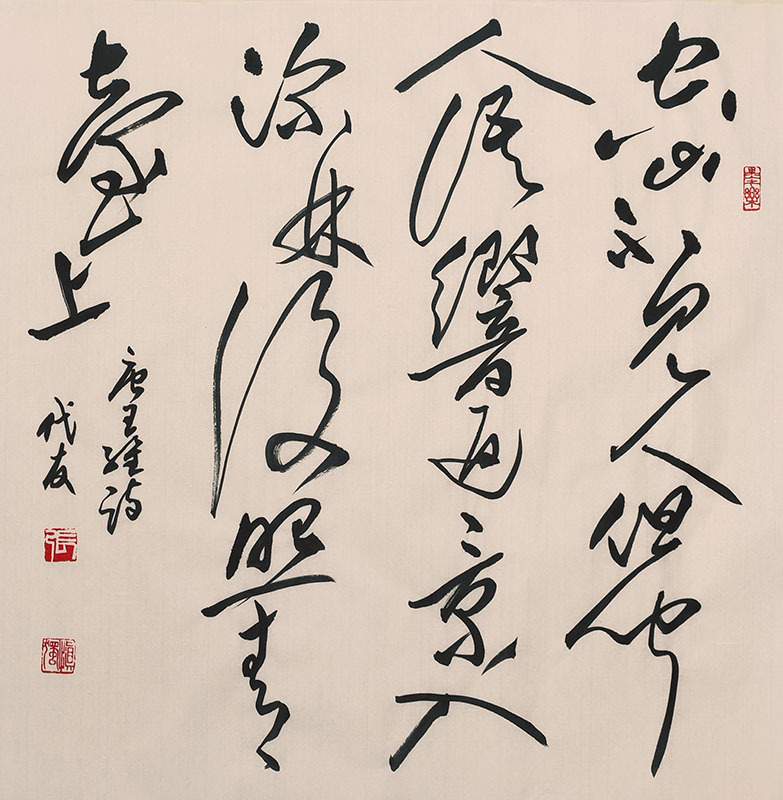 空山不見人但聞
人語響返景入
深林復照青
臺上
唐王維詩
代友
張
慎獨